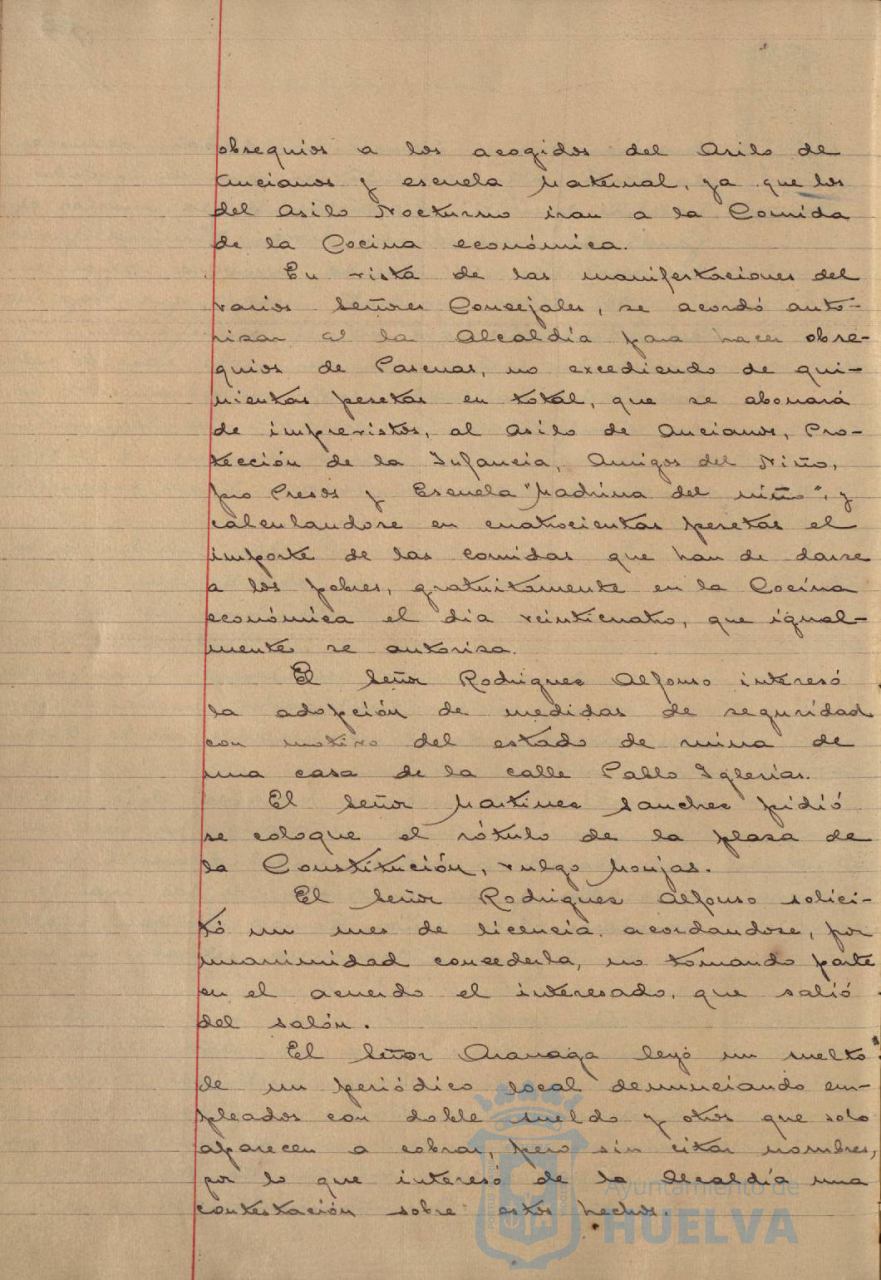 obsequios a los acogidos del Asilo de
Ancianos y escuela Maternal, ya que los
del Asilo Nocturno iran a la Comida
de la Cocina económica.
En vista de las manifestaciones del
varios Señores Concejales, se acordó auto-
rizar a la Alcaldía para hacer obse-
quios de Pascuas, no excediendo de qui-
nientas pesetas en total, que se abonará
de imprevistos, al Asilo de Ancianos, Pro-
tección de la Infancia, Amigos del Niño,
pro Presos y Escuela "Madrina del niño", y
calculandose en cuatrocientas pesetas el
importe de las comidas que han de darse
a los pobres, gratuitamente en la Cocina
económica el dia veinticuatro, que igual-
mente se autoriza.
El Señor Rodriguez Alfonso interesó
la adopción de medidas de seguridad
con motivo del estado de ruina de
una casa de la calle Pablo Iglesias.
El Señor Martinez Sanchez pidió
se coloque el rótulo de la plaza de
la Constitución, vulgo Monjas.
El Señor Rodriguez Alfonso solici-
tó un mes de licencia, acordandose, por
unanimidad concederla, no tomando parte
en el acuerdo el interesado, que salió
del salón.
El Señor Aranaga leyó un suelto
de un periódico local denunciando em-
pleados con doble sueldo y otros que solo
aparecen a cobrar, pero sin citar nombres,
por lo que interesó de la Alcaldía una
contestación sobre estos hechos.
Ayuntamiento de
HUELVA